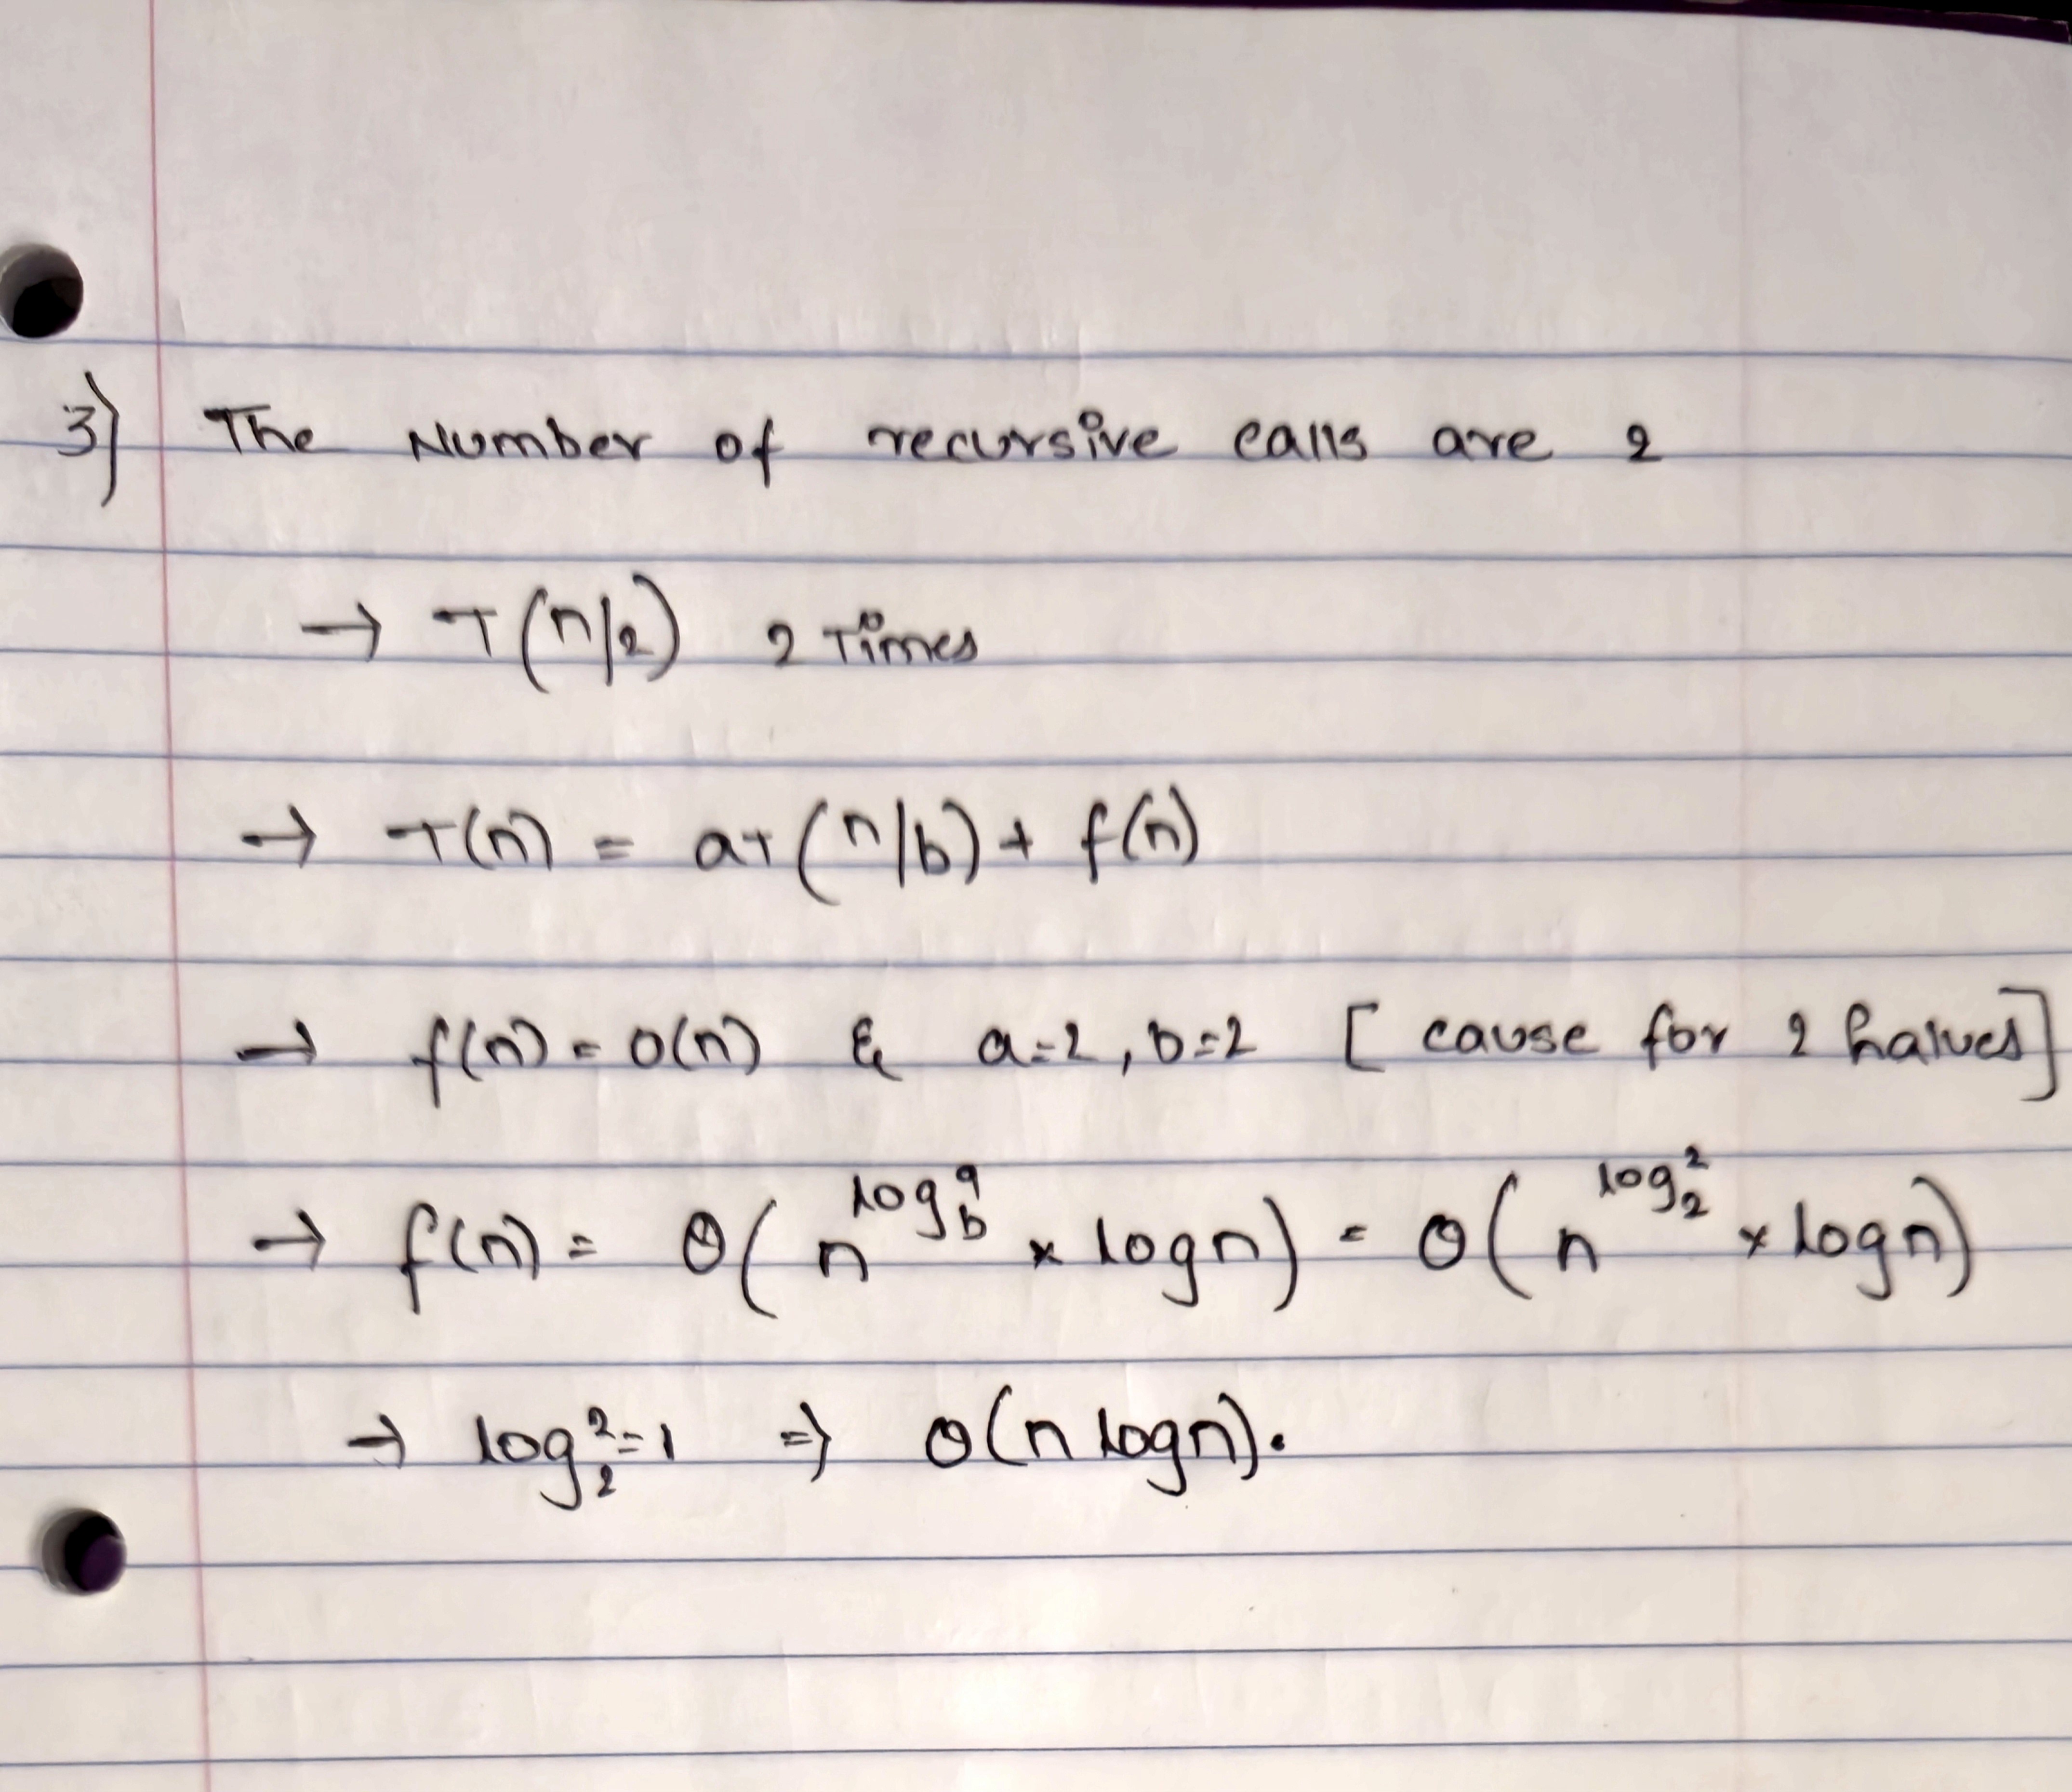 3) The Number of recursive calls are 2
→ T(n/2) 2 Times
→ T(n) = aT(n/b) + f(n)
→ f(n) = O(n) & a=2, b=2 [ cause for 2 halves]
→ f(n) = Θ( n^log_b^a × log n) = Θ( n^log_2^2 × log n)
→ log_2^2 = 1 ⇒ Θ(n log n).